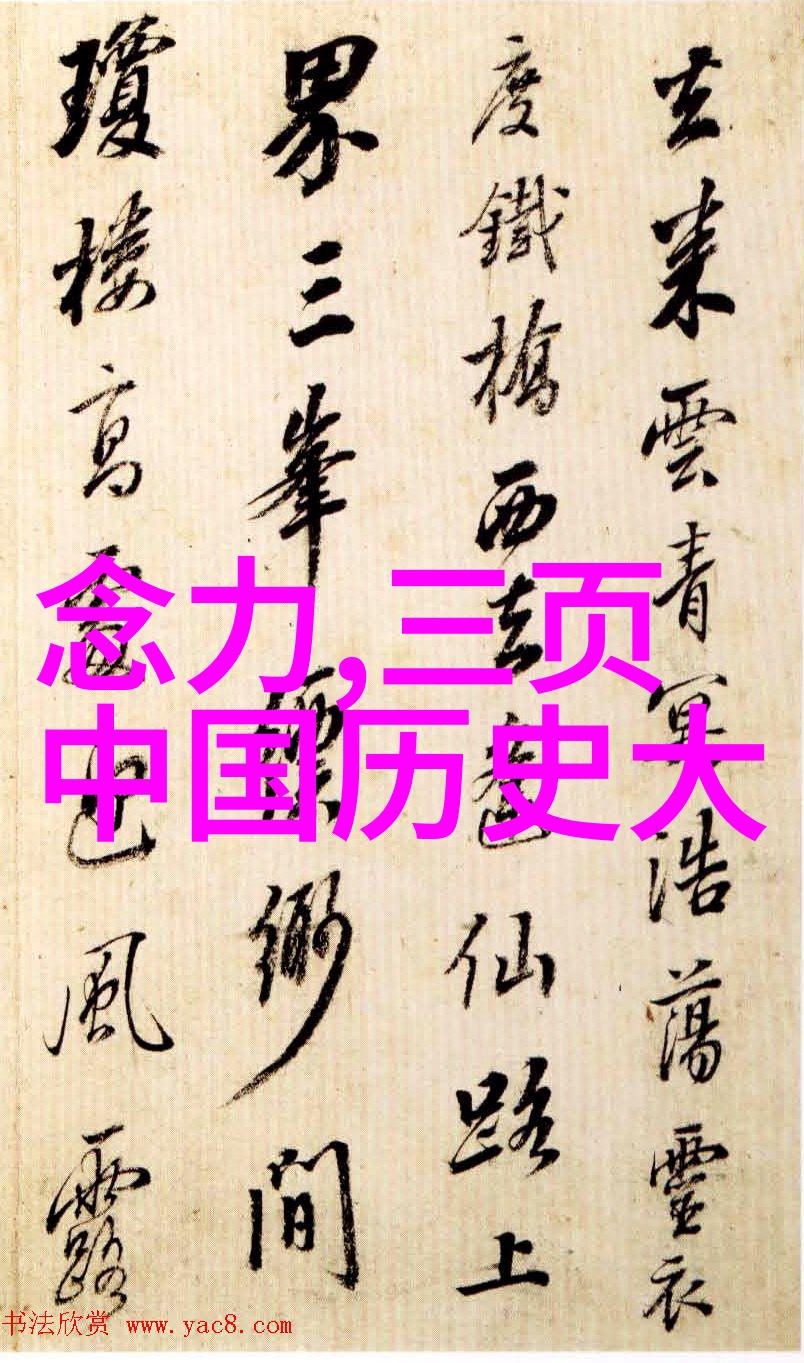 去雲青冥浩蕩靈衣
度鐵橋西去仙路上
界三峯縹緲間
瓊樓高風露
念力,三页
中国历史大
书法欣赏 www.yac8.com